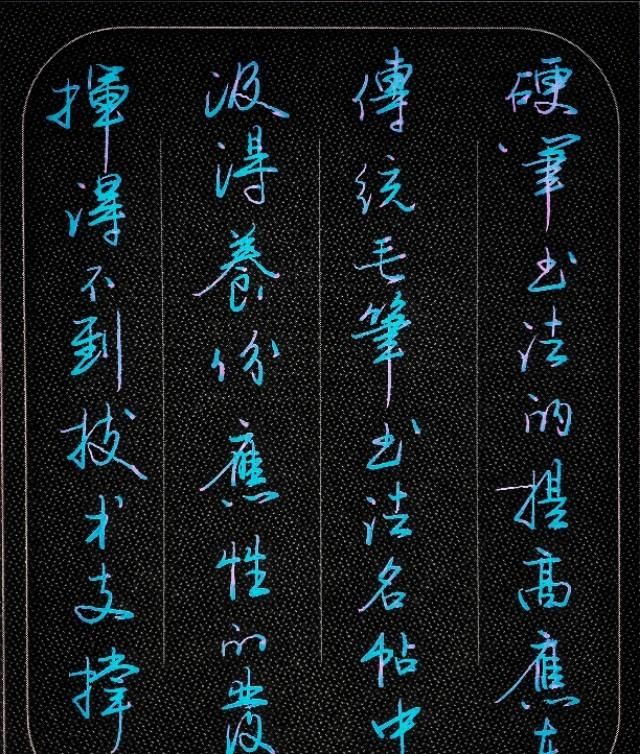 硬筆书法的提高應
傳統毛筆书法名帖中
汲得養份應性的發
揮得不到技术支撑